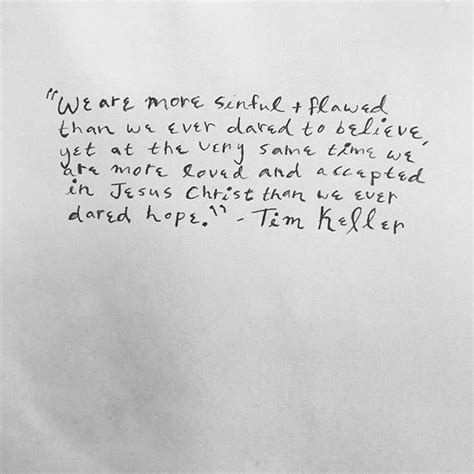 "We are more sinful + flawed
than we ever dared to believe,
yet at the very same time we
are more loved and accepted
in Jesus Christ than we ever
dared hope." - Tim Keller